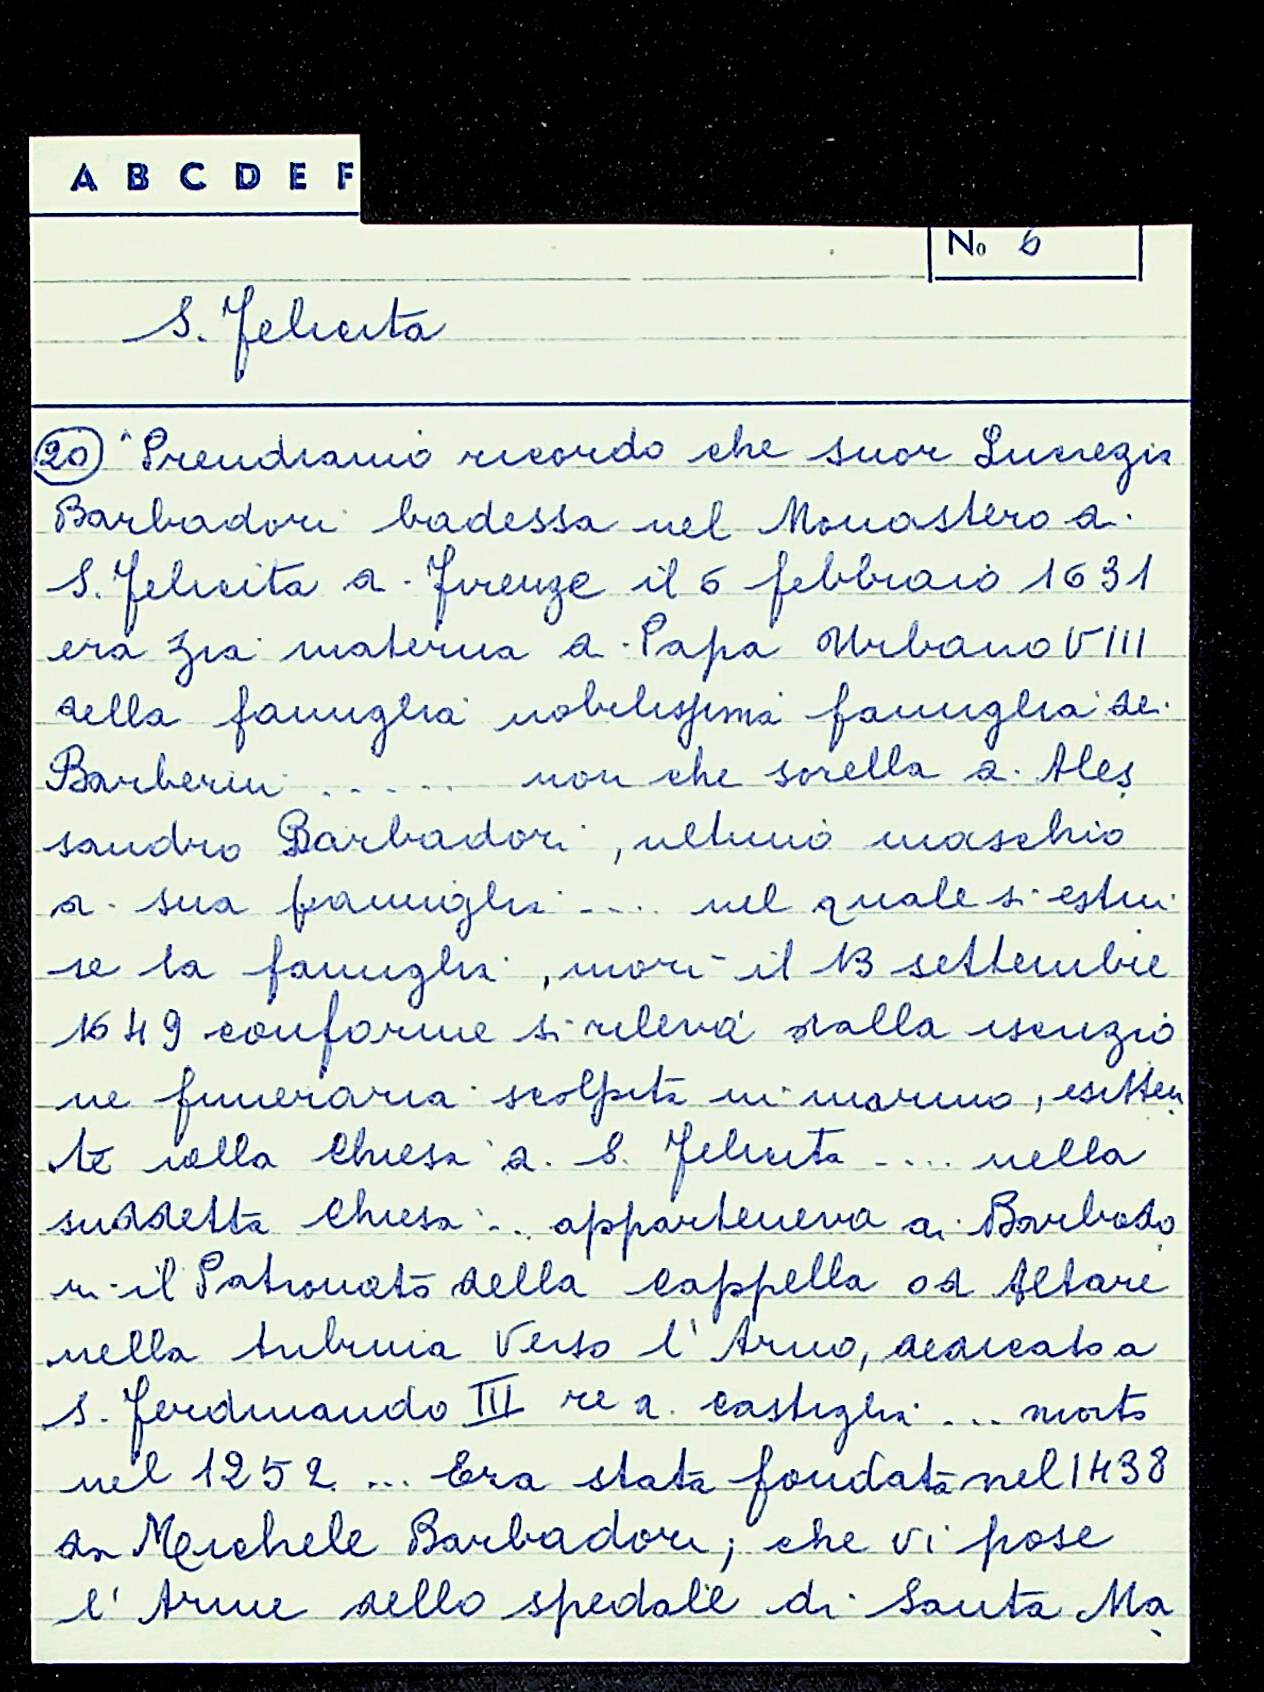 A B C D E F
No 6
S. Felicita
20 "Prendiamo ricordo che suor Lucrezia
Barbadori badessa nel Monastero di
S. Felicita di Firenze il 6 febbraio 1631
era zia materna di Papa Urbano VIII
della famiglia nobilissima famiglia de
Barberini ..... non che sorella di Ales
sandro Barbadori, ultimo maschio
di sua famiglia .... nel quale si estin
se la famiglia, morì il 13 settembre
1649 conforme si rileva dalla iscrizio
ne funeraria scolpita in marmo, esisten
te nella Chiesa di S. Felicita .... nella
suddetta Chiesa ... apparteneva ai Barbado
ri il Patronato della Cappella od Altare
nella tribuna verso l'Arno, dedicato a
S. Ferdinando III re di Castiglia ... morto
nel 1252 ... Era stata fondata nel 1438
da Michele Barbadori; che vi pose
l'Arme dello spedale di Santa Ma